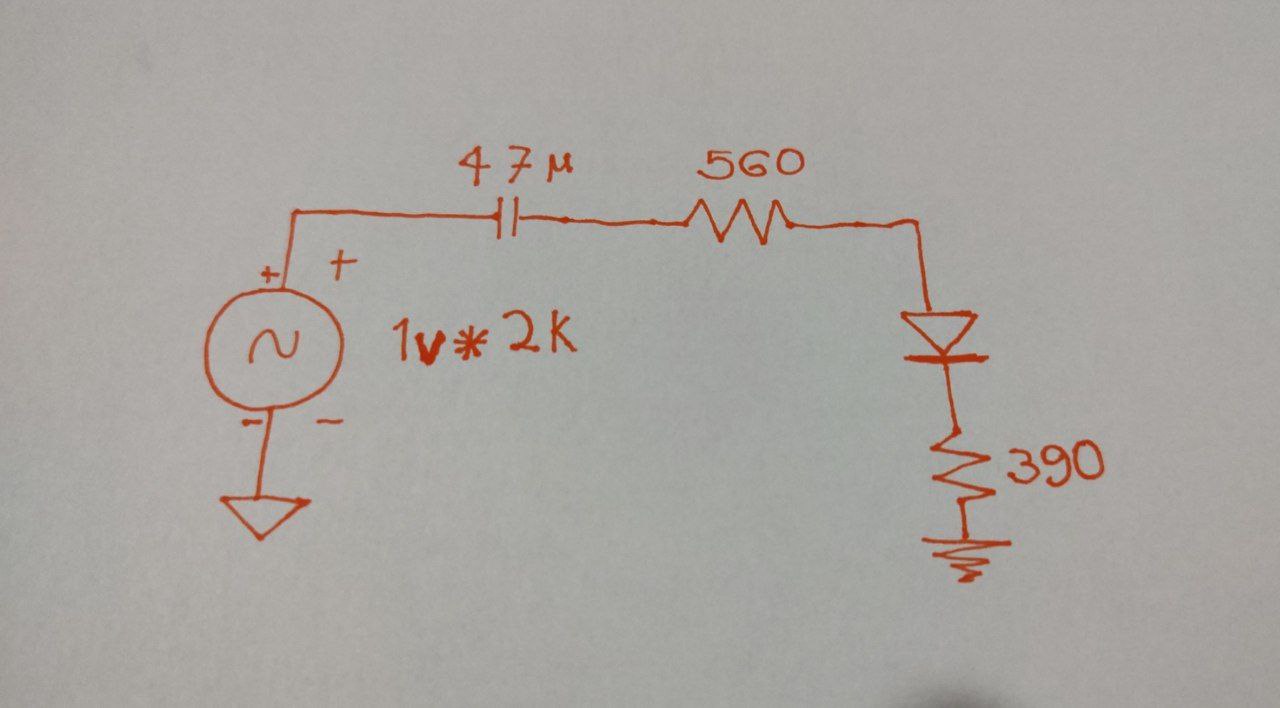 47µ
560
+ +
~
1v* 2K
- -
390